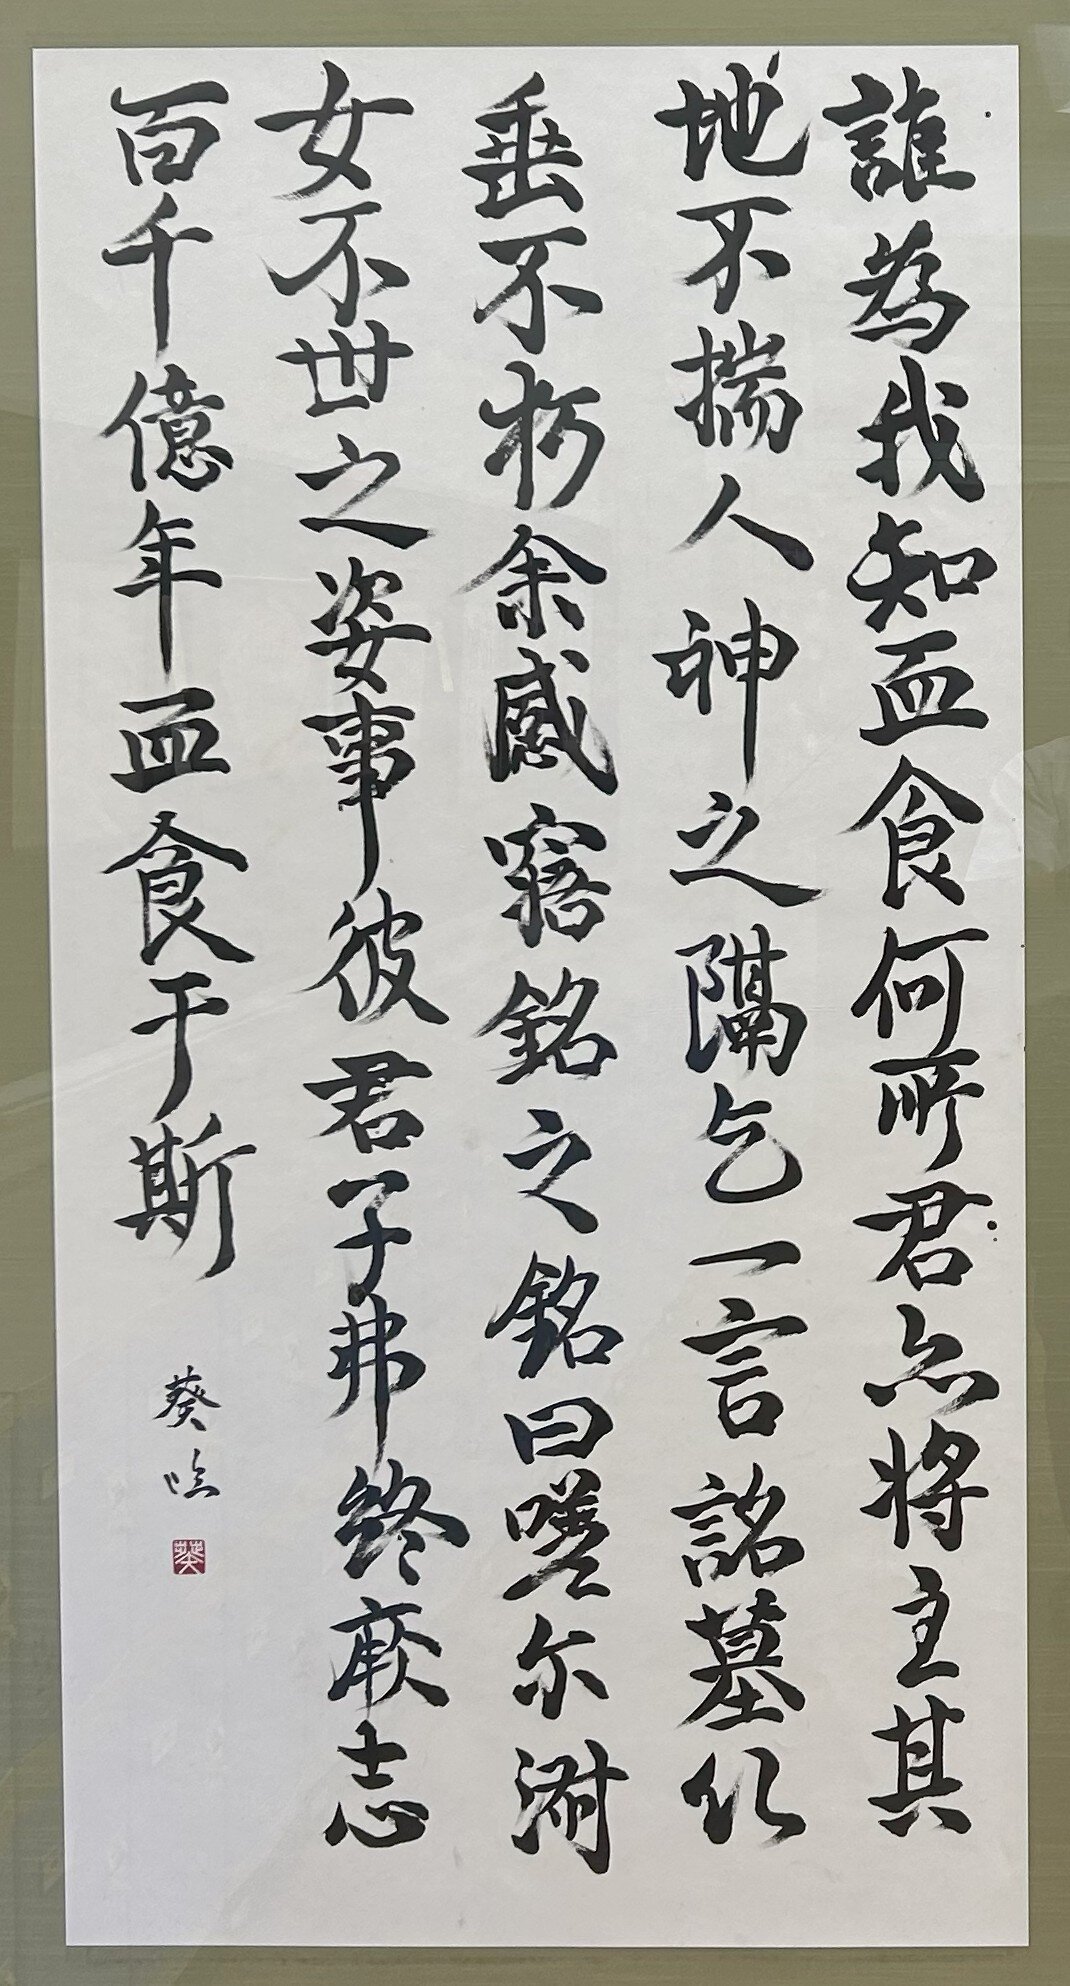 誰為我知血食何所君亦將主其
地不揣人神之隔乞一言銘墓以
垂不朽余感寤銘之銘曰嗟尔渊
女不世之姿事彼君子弗終厥志
百千億年血食于斯
葵